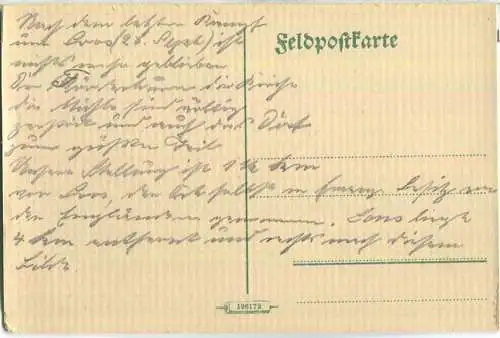 Nach dem letzten Kampf
um Loos (25. Sept.) ist
nichts mehr geblieben
Die Fördertürme die Kirche
die Mühle sind völlig
zerstört und auch das Dorf
zum größten Teil
Unsere Stellung ist 1 ½ km
vor Loos, der Ort selbst in Besitz von
den Engländern genommen. Lens liegt
4 km entfernt und rechts nach diesem
Bilde.
Feldpostkarte
196172